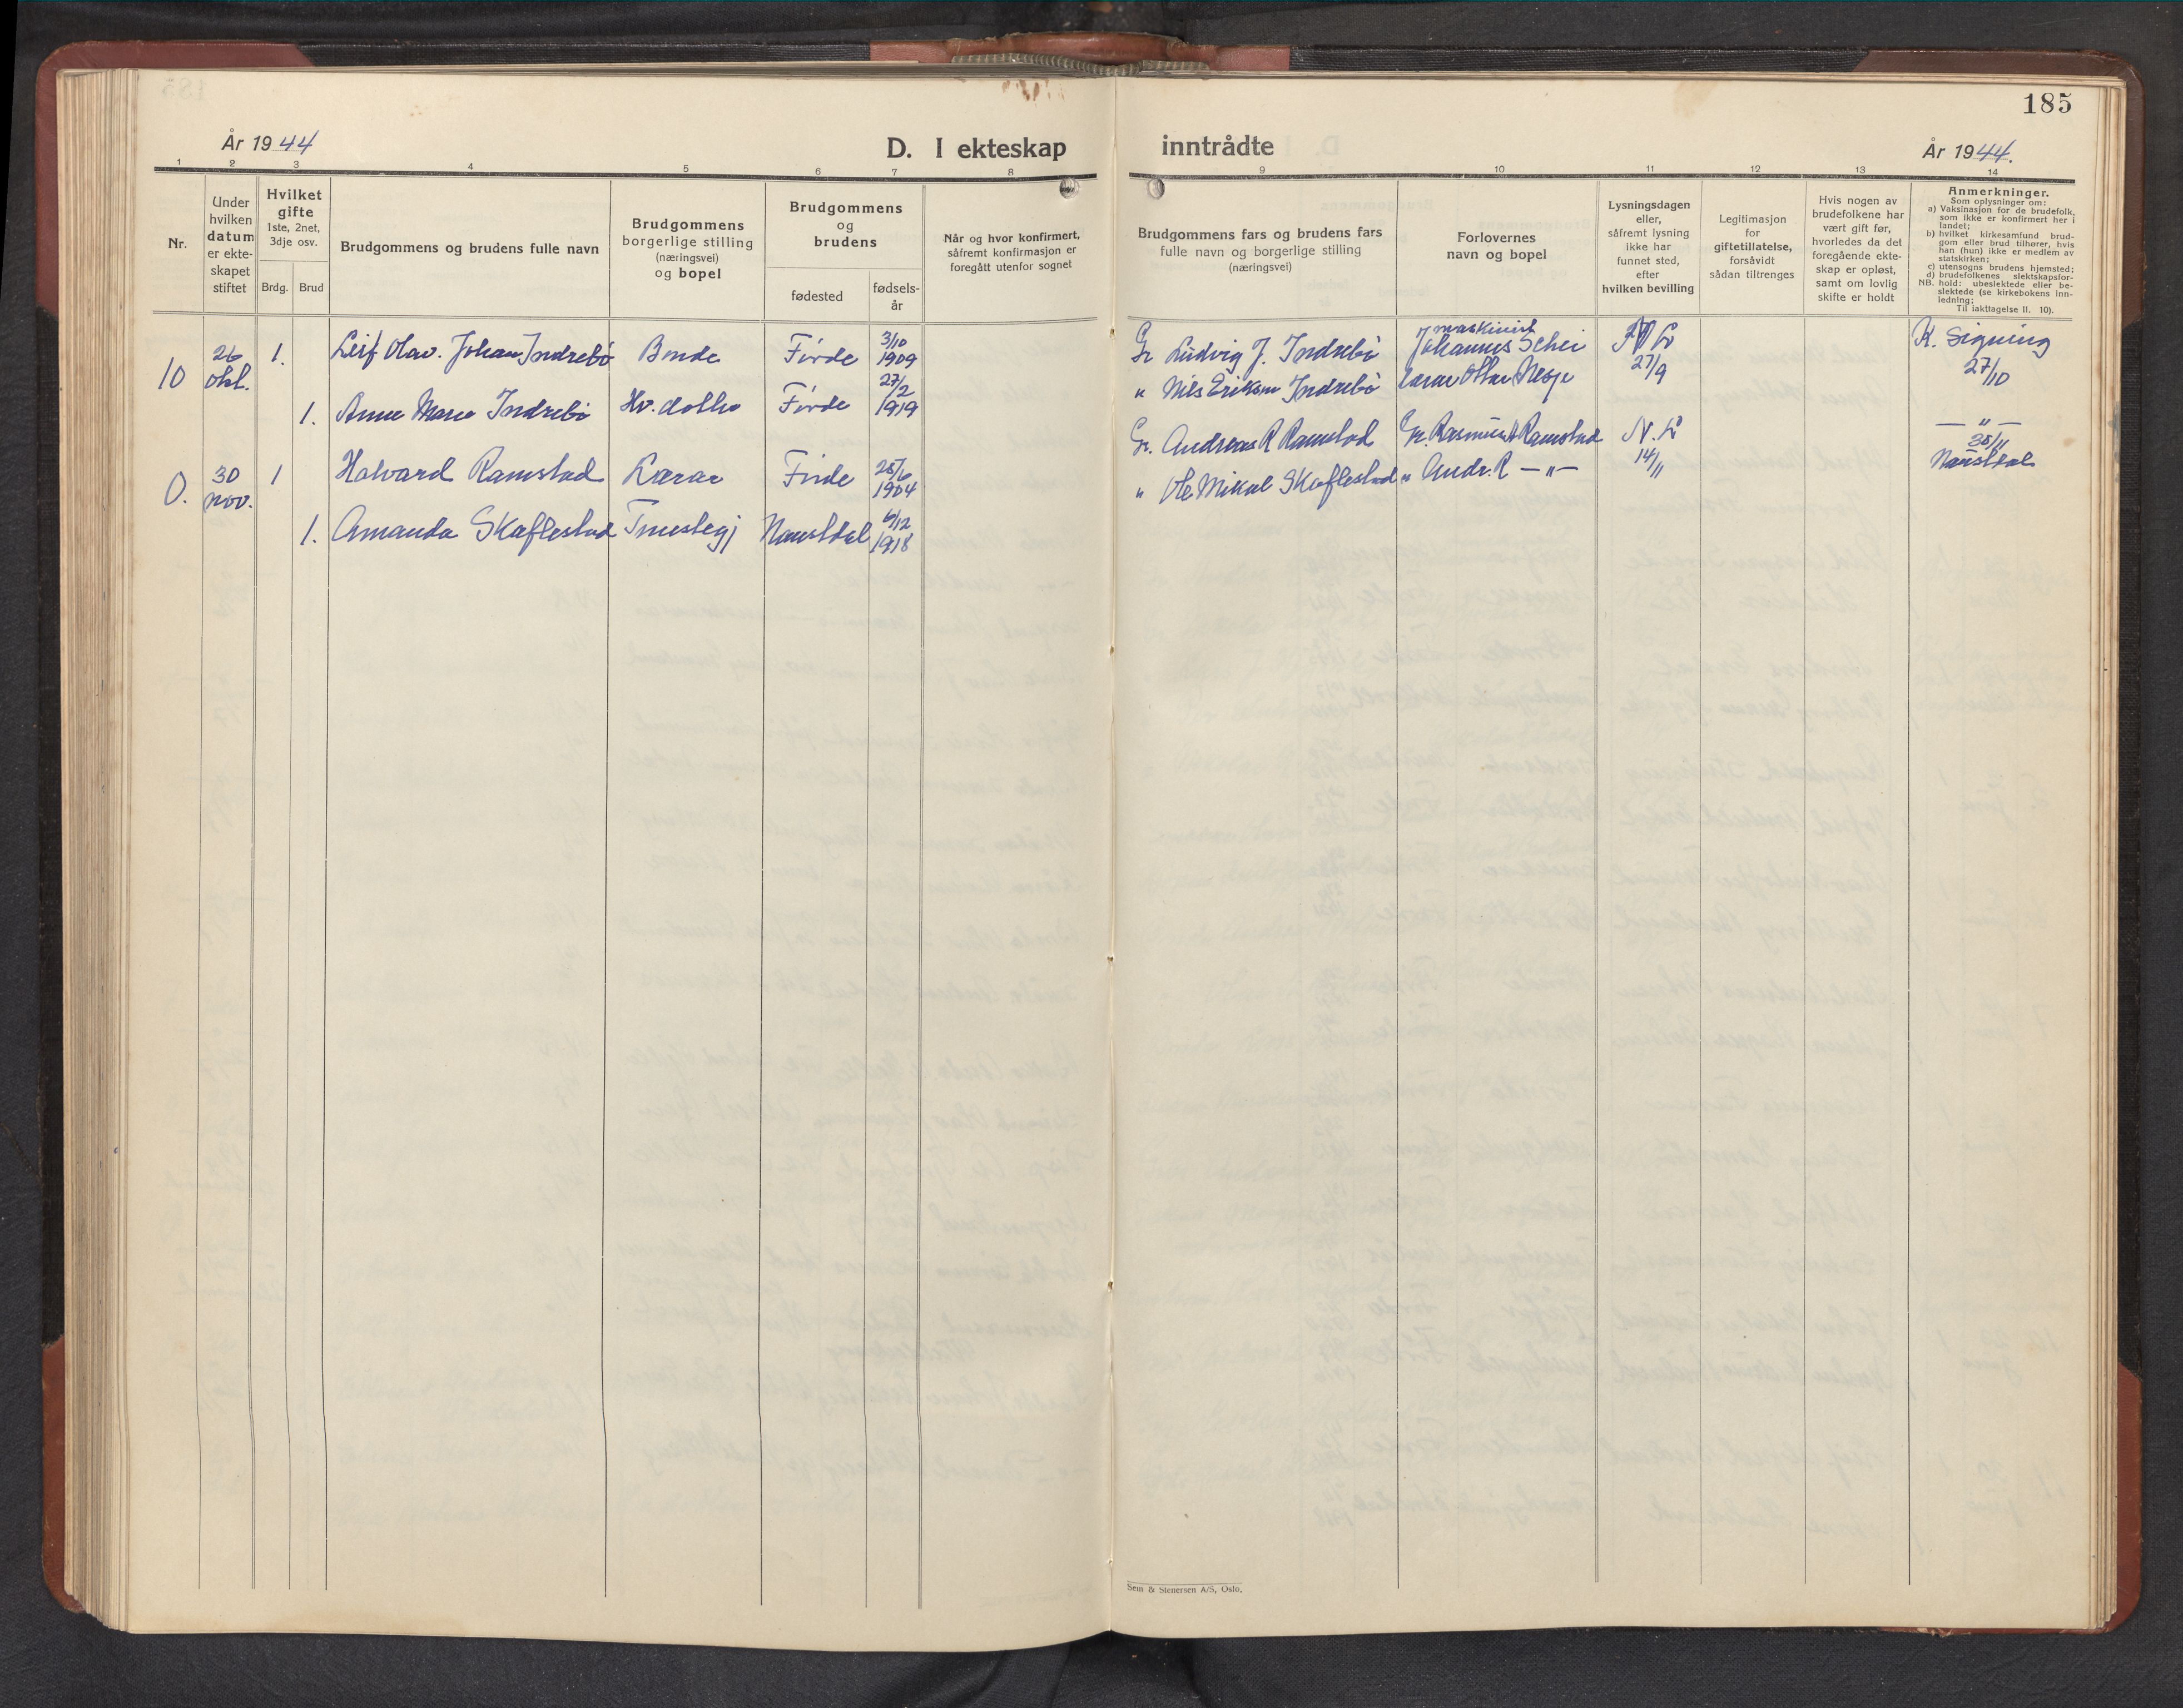 185
År 1944
D. I ekteskap inntrådte
År 1944.
1 2 3 4 5 6 7 8 9 10 11 12 13 14
Nr.
Under
hvilken
datum
er ekte-
skapet
stiftet
Hvilket
gifte
1ste, 2net,
3dje osv.
Brdg. Brud
Brudgommens og brudens fulle navn
Brudgommens
borgerlige stilling
(næringsvei)
og bopel
Brudgommens
og
brudens
fødested
fødsels-
år
Når og hvor konfirmert,
såfremt konfirmasjon er
foregått utenfor sognet
Brudgommens fars og brudens fars
fulle navn og borgerlige stilling
(næringsvei)
Forlovernes
navn og bopel
Lysningsdagen
eller,
såfremt lysning
ikke har
funnet sted,
efter
hvilken bevilling
Legitimasjon
for
giftetillatelse,
forsåvidt
sådan tiltrenges
Hvis nogen av
brudefolkene har
vært gift før,
hvorledes da det
foregående ekte-
skap er opløst,
samt om lovlig
skifte er holdt
Anmerkninger.
Som oplysninger om:
a) Vaksinasjon for de brudefolk,
som ikke er konfirmert her i
landet;
b) hvilket kirkesamfund brud-
gom eller brud tilhører, hvis
han (hun) ikke er medlem av
statskirken;
c) utensogns brudens hjemsted;
d) brudefolkenes slektskapsfor-
NB. hold: ubeslektede eller be-
slektede (se kirkebokens inn-
ledning;
Til iakttagelse II. 10).
10 26 okt. 1. Leif Olav. Johan Indrebø Bonde Førde 3/10 1909
1. Anna Maria Indrebø Hv. dotter Førde 27/2 1919
Gr Ludvig J. Indrebø
" Nils Erikson Indrebø
maskinist
Johannes Schei
lærar Ottar Nesje
N L
27/9
K. Signing
27/10
0. 30 nov. 1 Halvard Ramstad Lærar Førde 1904
1. Amanda Skaflestad Tenestegj Naustdal 6/12 1918
Gr. Andreas R Ramstad
" Ole Mikal Skaflestad
Gr. Rasmus A Ramstad
" Andr. R — " —
N. L
14/11
— " —
30/11
Naustdal
Sem & Stenersen A/S, Oslo.